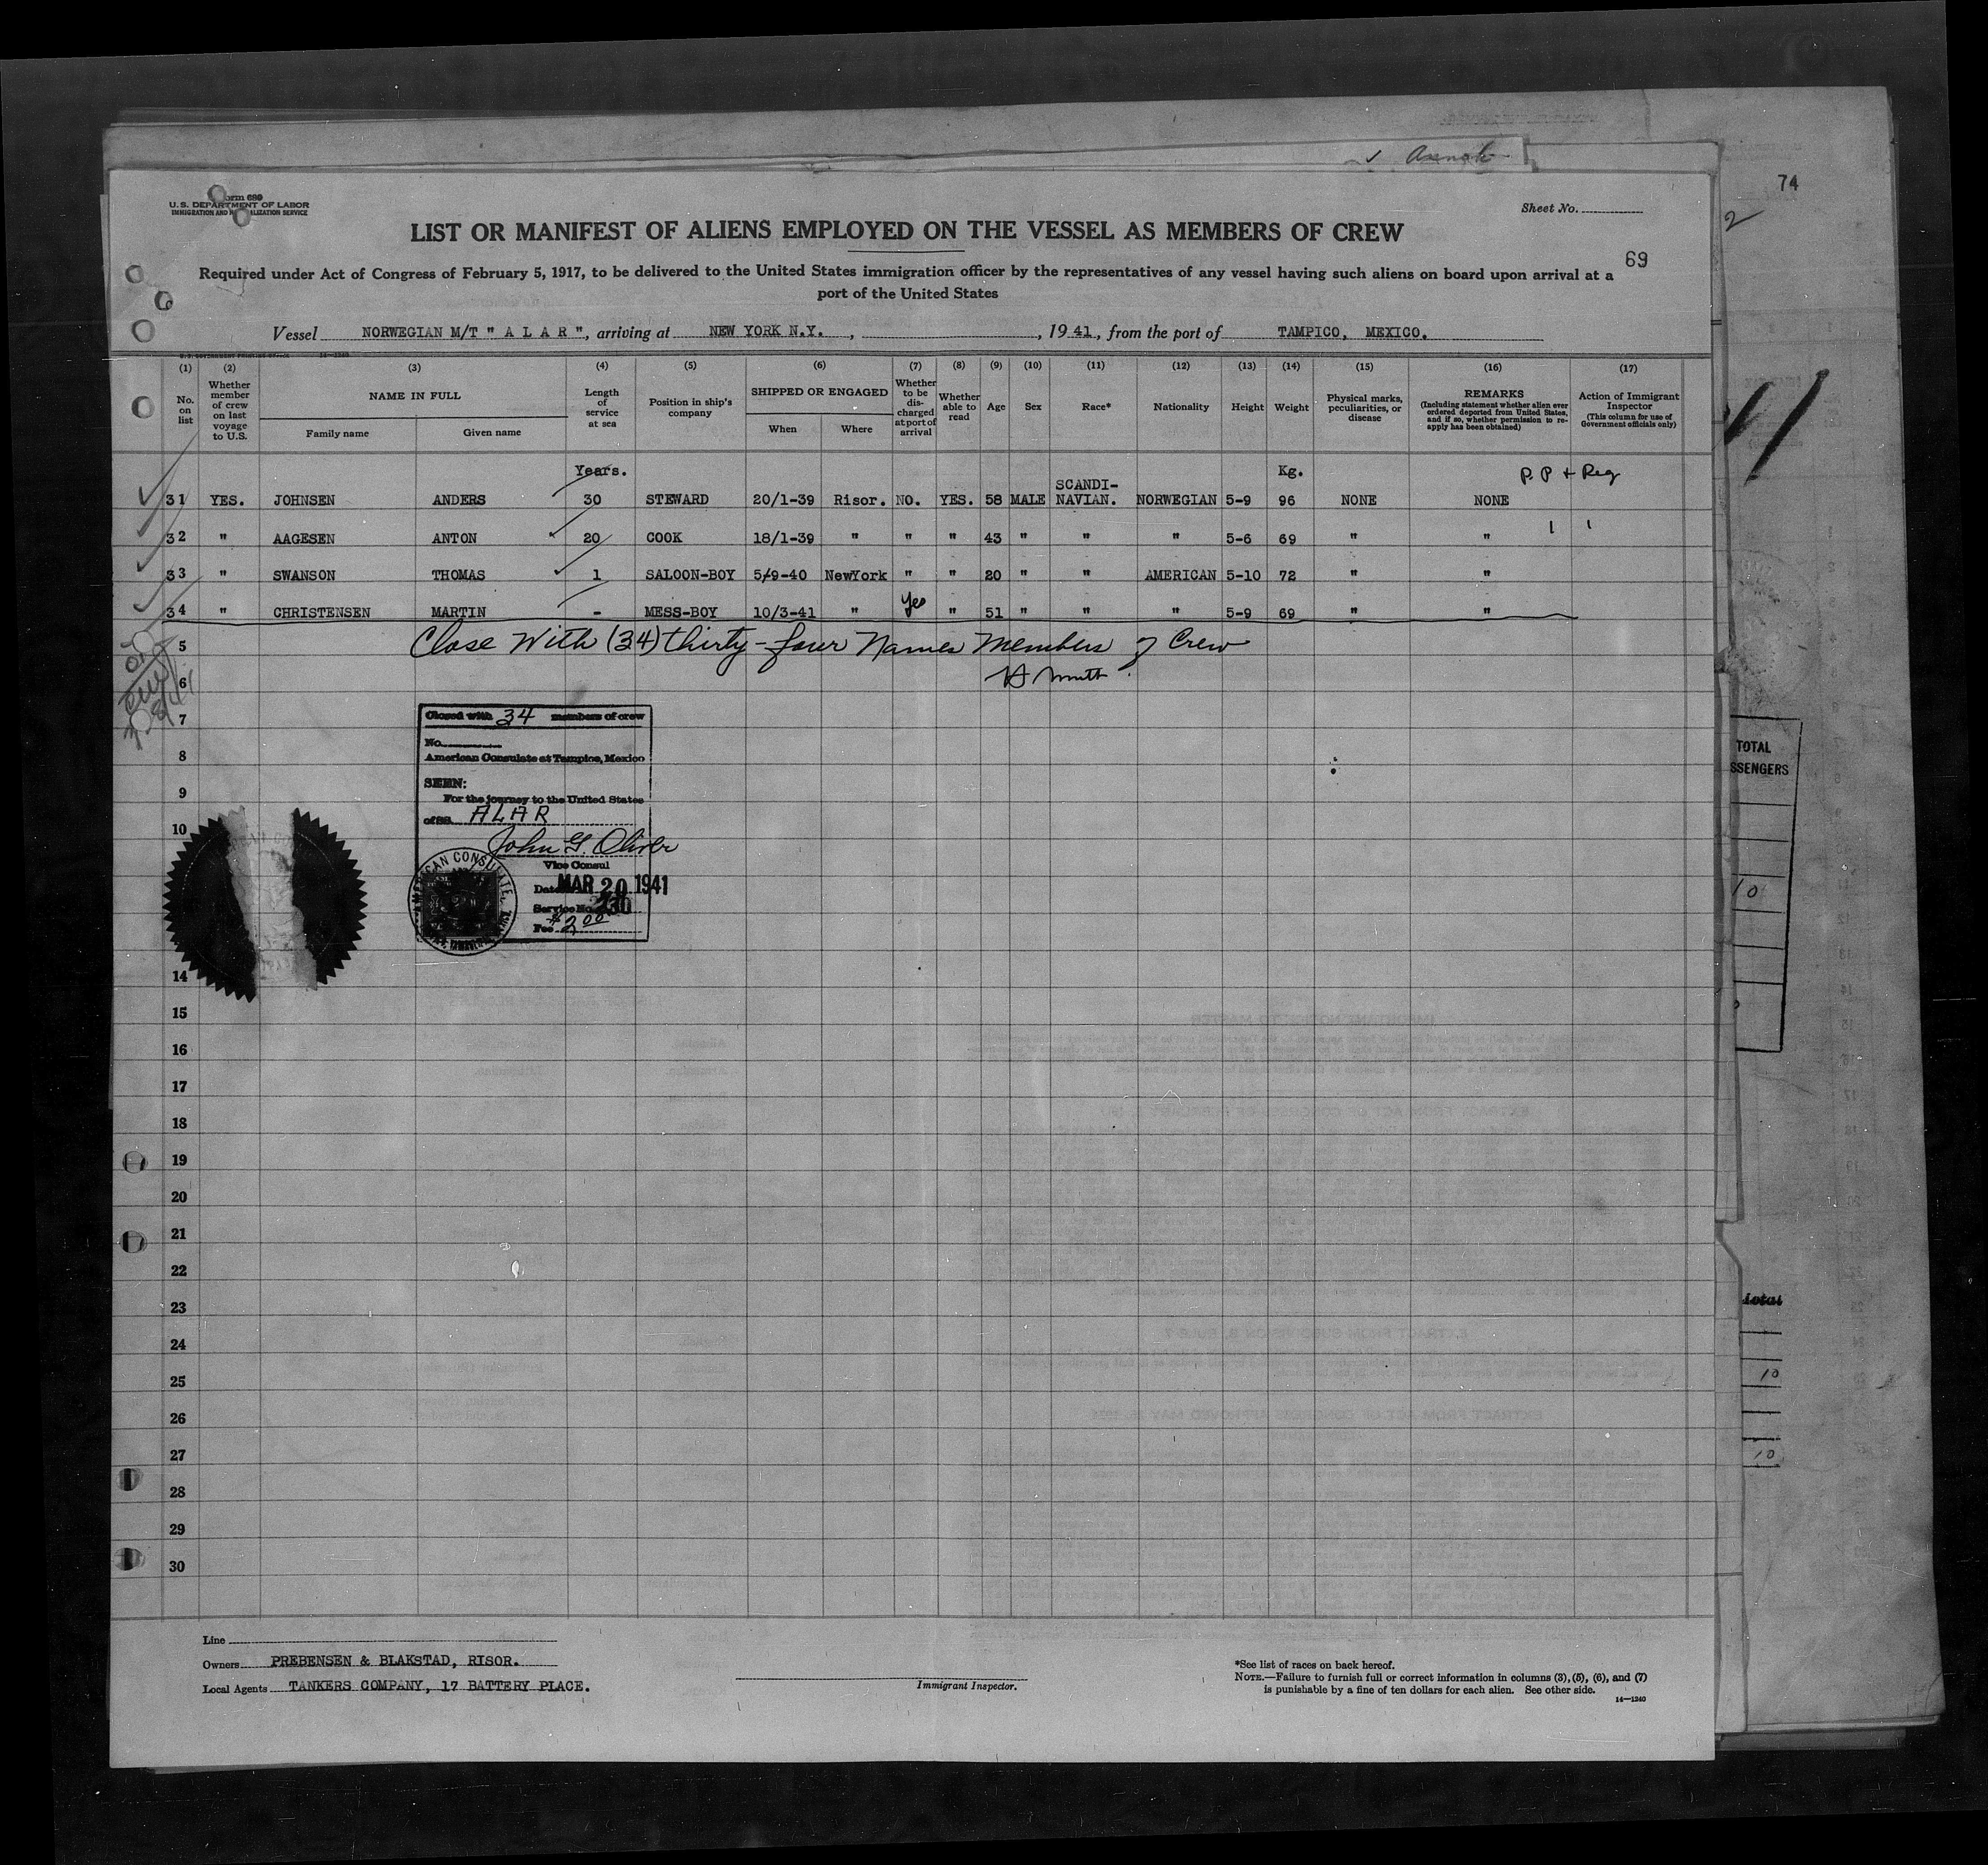 Arnok
74
2
Form 680
U.S. DEPARTMENT OF LABOR
Sheet No.
LIST OR MANIFEST OF ALIENS EMPLOYED ON THE VESSEL AS MEMBERS OF CREW
69
Required under Act of Congress of February 5, 1917, to be delivered to the United States immigration officer by the representatives of any vessel having such aliens on board upon arrival at a
port of the United States
Vessel NORWEGIAN M/T " A L A R ", arriving at NEW YORK N.Y. , , 19 41, from the port of TAMPICO, MEXICO.
(1) (2) (3) (4) (5) (6) (7) (8) (9) (10) (11) (12) (13) (14) (15) (16) (17)
No. on list
Whether member of crew on last voyage to U.S.
NAME IN FULL
Family name Given name
Length of service at sea
Position in ship's company
SHIPPED OR ENGAGED
When Where
Whether to be discharged at port of arrival
Whether able to read
Age
Sex
Race*
Nationality
Height
Weight
Physical marks, peculiarities, or disease
REMARKS
(Including statement whether alien ever ordered deported from United States, and if so, whether permission to re-apply has been obtained)
Action of Immigrant Inspector
(This column for use of Government officials only)
Years. Kg. P.P + Reg
31 YES. JOHNSEN ANDERS 30 STEWARD 20/1-39 Risor. NO. YES. 58 MALE SCANDI-NAVIAN. NORWEGIAN 5-9 96 NONE NONE
32 " AAGESEN ANTON 20 COOK 18/1-39 " " " 43 " " " 5-6 69 " "
33 " SWANSON THOMAS 1 SALOON-BOY 5/9-40 NewYork " " 20 " " AMERICAN 5-10 72 " "
34 " CHRISTENSEN MARTIN - MESS-BOY 10/3-41 " Yes " 51 " " " 5-9 69 " "
Close With (34) thirty-four Names Members of Crew
5
6
7
8
9
10
14
15
16
17
18
19
20
21
22
23
24
25
26
27
28
29
30
Closed with 34 members of crew
No.
American Consulate at Tampico, Mexico
SEEN:
For the journey to the United States
of SS. ALAR
John G. Oliver
Vice Consul
Date MAR 20 1941
Service No. 230
Fee $2.00
AMERICAN CONSULATE
TOTAL
SSENGERS
10
total
10
10
Line
Owners PREBENSEN & BLAKSTAD, RISOR.
Local Agents TANKERS COMPANY, 17 BATTERY PLACE.
Immigrant Inspector.
*See list of races on back hereof.
NOTE.—Failure to furnish full or correct information in columns (3), (5), (6), and (7)
is punishable by a fine of ten dollars for each alien. See other side.
14—1240